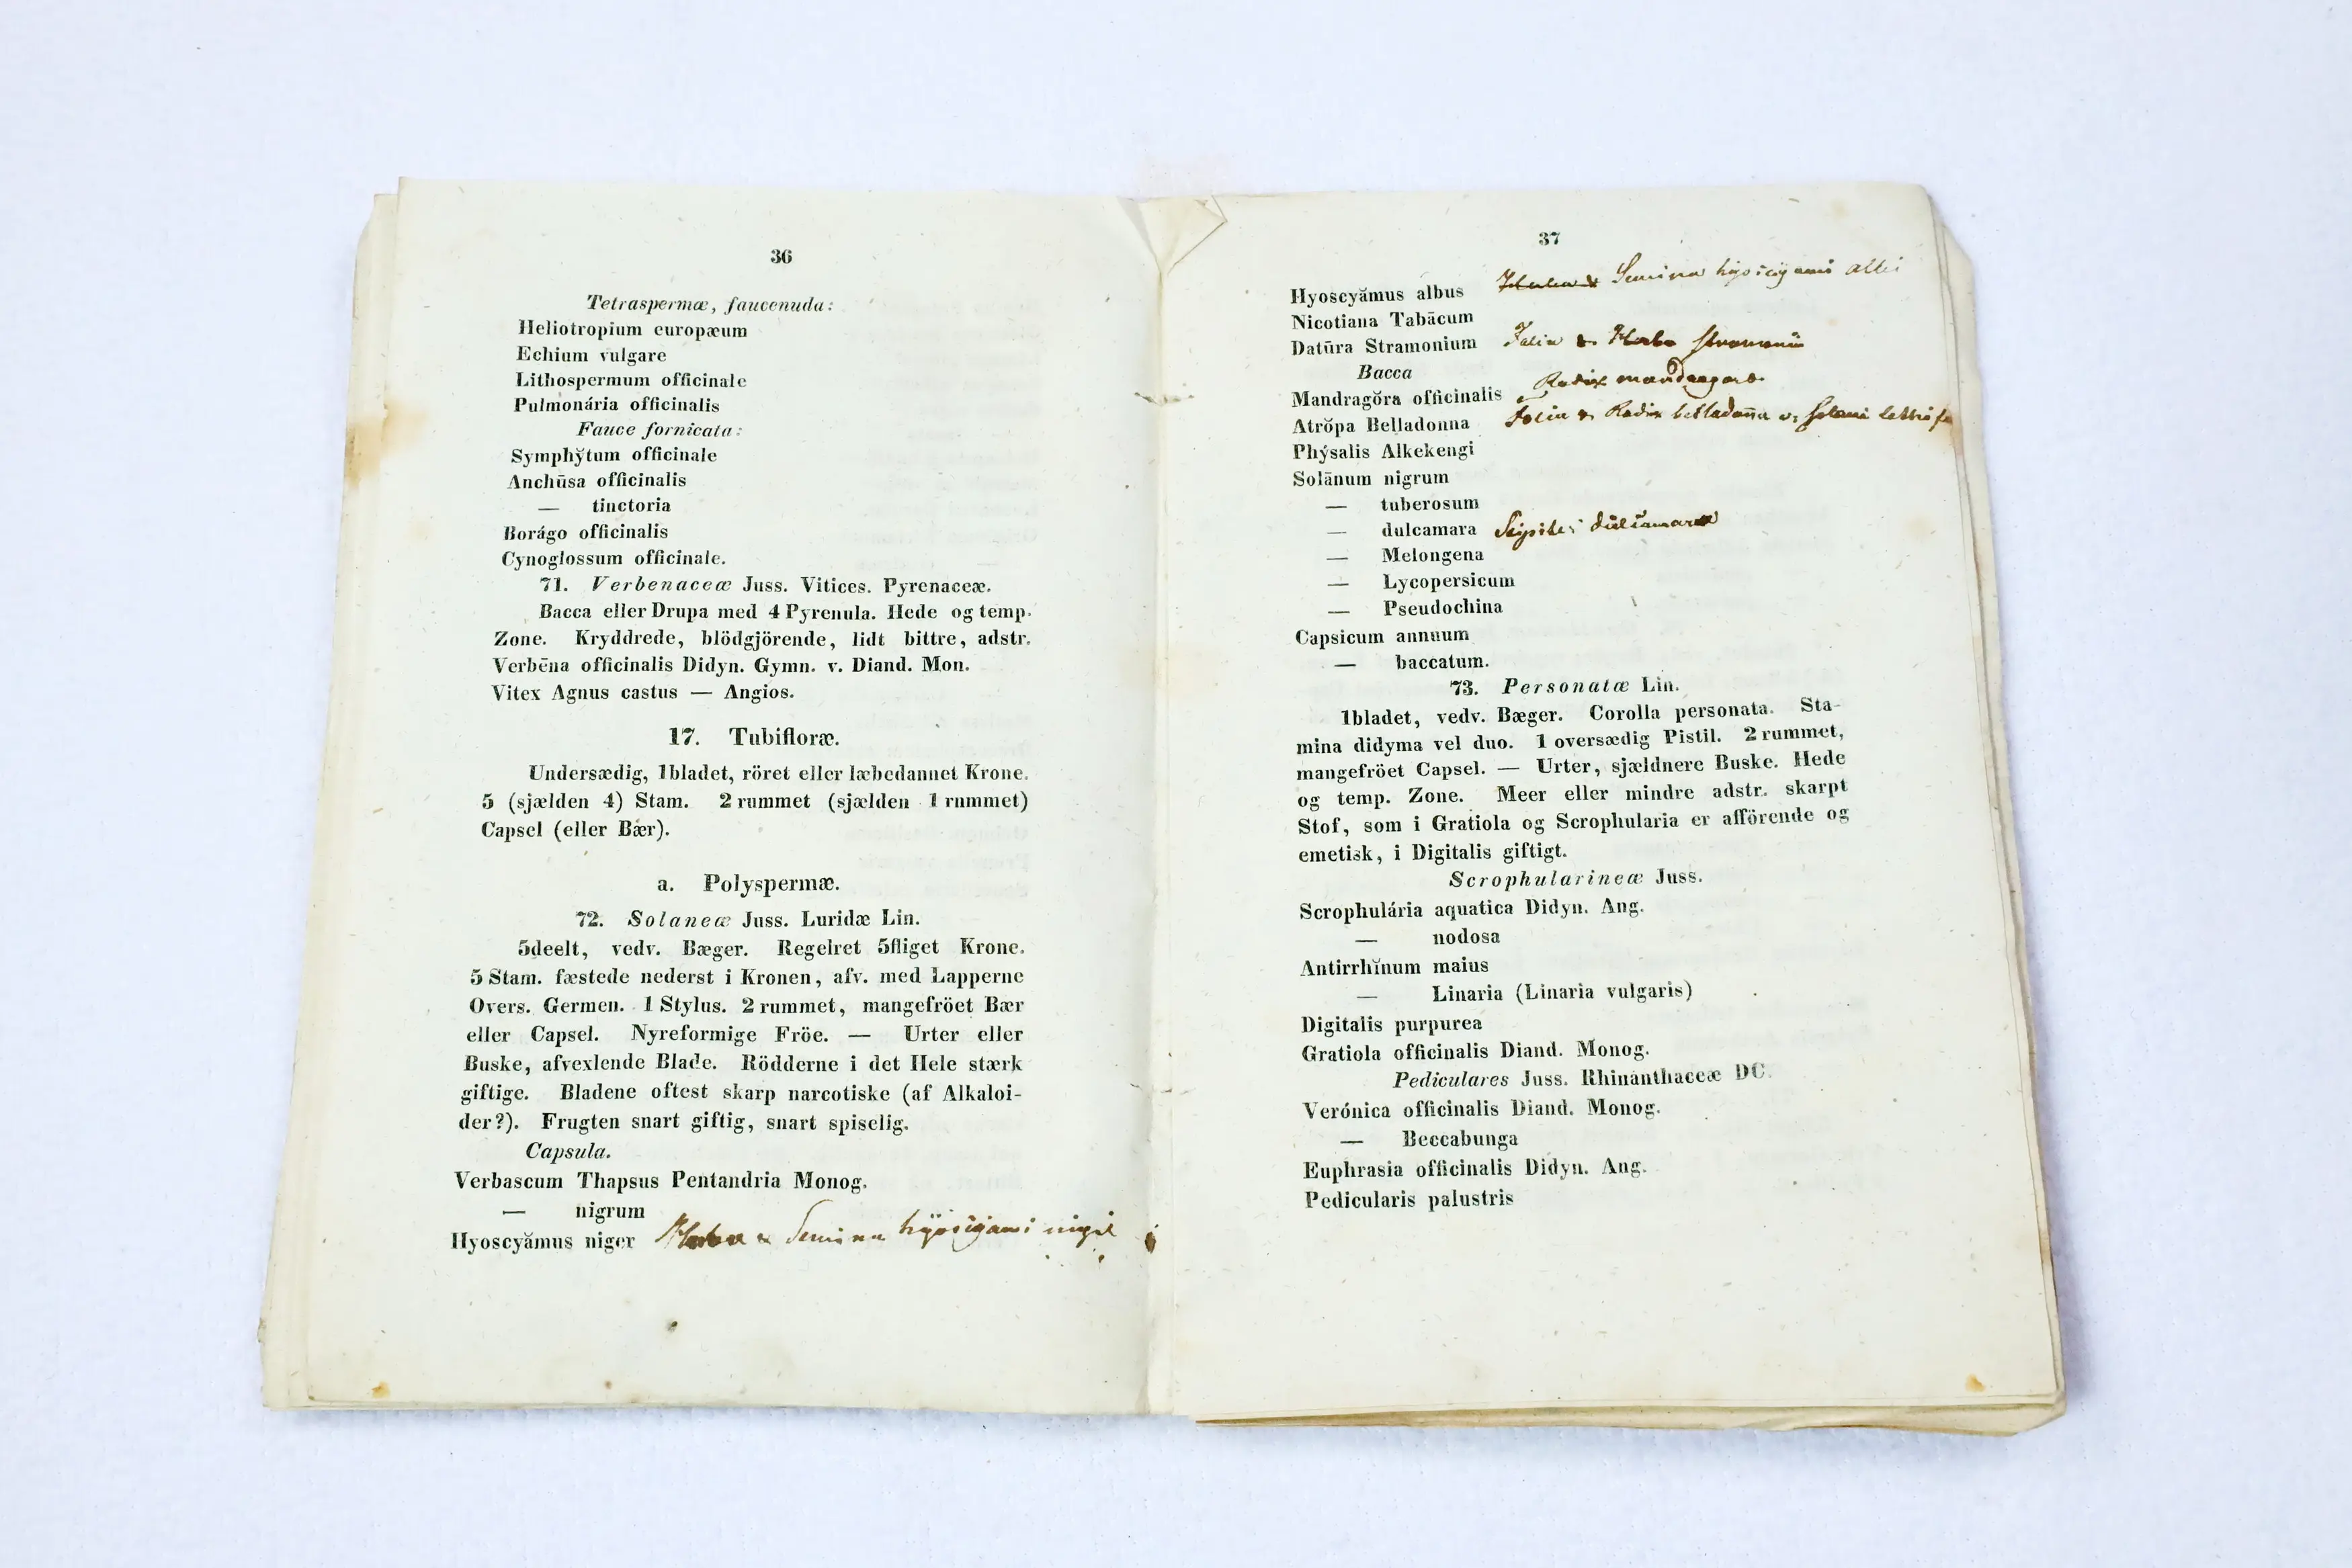 36
Tetraspermæ, faucenuda:
Heliotropium europæum
Echium vulgare
Lithospermum officinale
Pulmonária officinalis
Fauce fornicata:
Symphy̆tum officinale
Anchūsa officinalis
— tinctoria
Borágo officinalis
Cynoglossum officinale.
71. Verbenaceæ Juss. Vitices. Pyrenaceæ.
Bacca eller Drupa med 4 Pyrenula. Hede og temp.
Zone. Kryddrede, blödgjörende, lidt bittre, adstr.
Verbēna officinalis Didyn. Gymn. v. Diand. Mon.
Vitex Agnus castus — Angios.
17. Tubifloræ.
Undersædig, 1bladet, röret eller læbedannet Krone.
5 (sjælden 4) Stam. 2 rummet (sjælden 1 rummet)
Capsel (eller Bær).
a. Polyspermæ.
72. Solaneæ Juss. Luridæ Lin.
5deelt, vedv. Bæger. Regelret 5fliget Krone.
5 Stam. fæstede nederst i Kronen, afv. med Lapperne
Overs. Germen. 1 Stylus. 2 rummet, mangefröet Bær
eller Capsel. Nyreformige Fröe. — Urter eller
Buske, afvexlende Blade. Rödderne i det Hele stærk
giftige. Bladene oftest skarp narcotiske (af Alkaloi-
der?). Frugten snart giftig, snart spiselig.
Capsula.
Verbascum Thapsus Pentandria Monog.
— nigrum
Hyoscyămus niger Herba & Semina hyosciami nigri
37
Hyoscyămus albus Herba & Semina hyosciyami albi
Nicotiana Tabācum
Datūra Stramonium Folia & Herba stramonii
Bacca
Mandragŏra officinalis Radix mandragoræ
Atrŏpa Belladonna Folia & Radix belladonna v. Solani
Phýsalis Alkekengi
Solānum nigrum
— tuberosum
— dulcamara Stipites dulcamaræ
— Melongena
— Lycopersicum
— Pseudochina
Capsicum annuum
— baccatum.
73. Personatæ Lin.
1bladet, vedv. Bæger. Corolla personata. Sta-
mina didyma vel duo. 1 oversædig Pistil. 2 rummet,
mangefröet Capsel. — Urter, sjældnere Buske. Hede
og temp. Zone. Meer eller mindre adstr. skarpt
Stof, som i Gratiola og Scrophularia er afförende og
emetisk, i Digitalis giftigt.
Scrophularineæ Juss.
Scrophulária aquatica Didyn. Ang.
— nodosa
Antirrhĭnum maius
— Linaria (Linaria vulgaris)
Digitalis purpurea
Gratiola officinalis Diand. Monog.
Pediculares Juss. Rhinanthaceæ DC.
Verónica officinalis Diand. Monog.
— Beccabunga
Euphrasia officinalis Didyn. Ang.
Pedicularis palustris